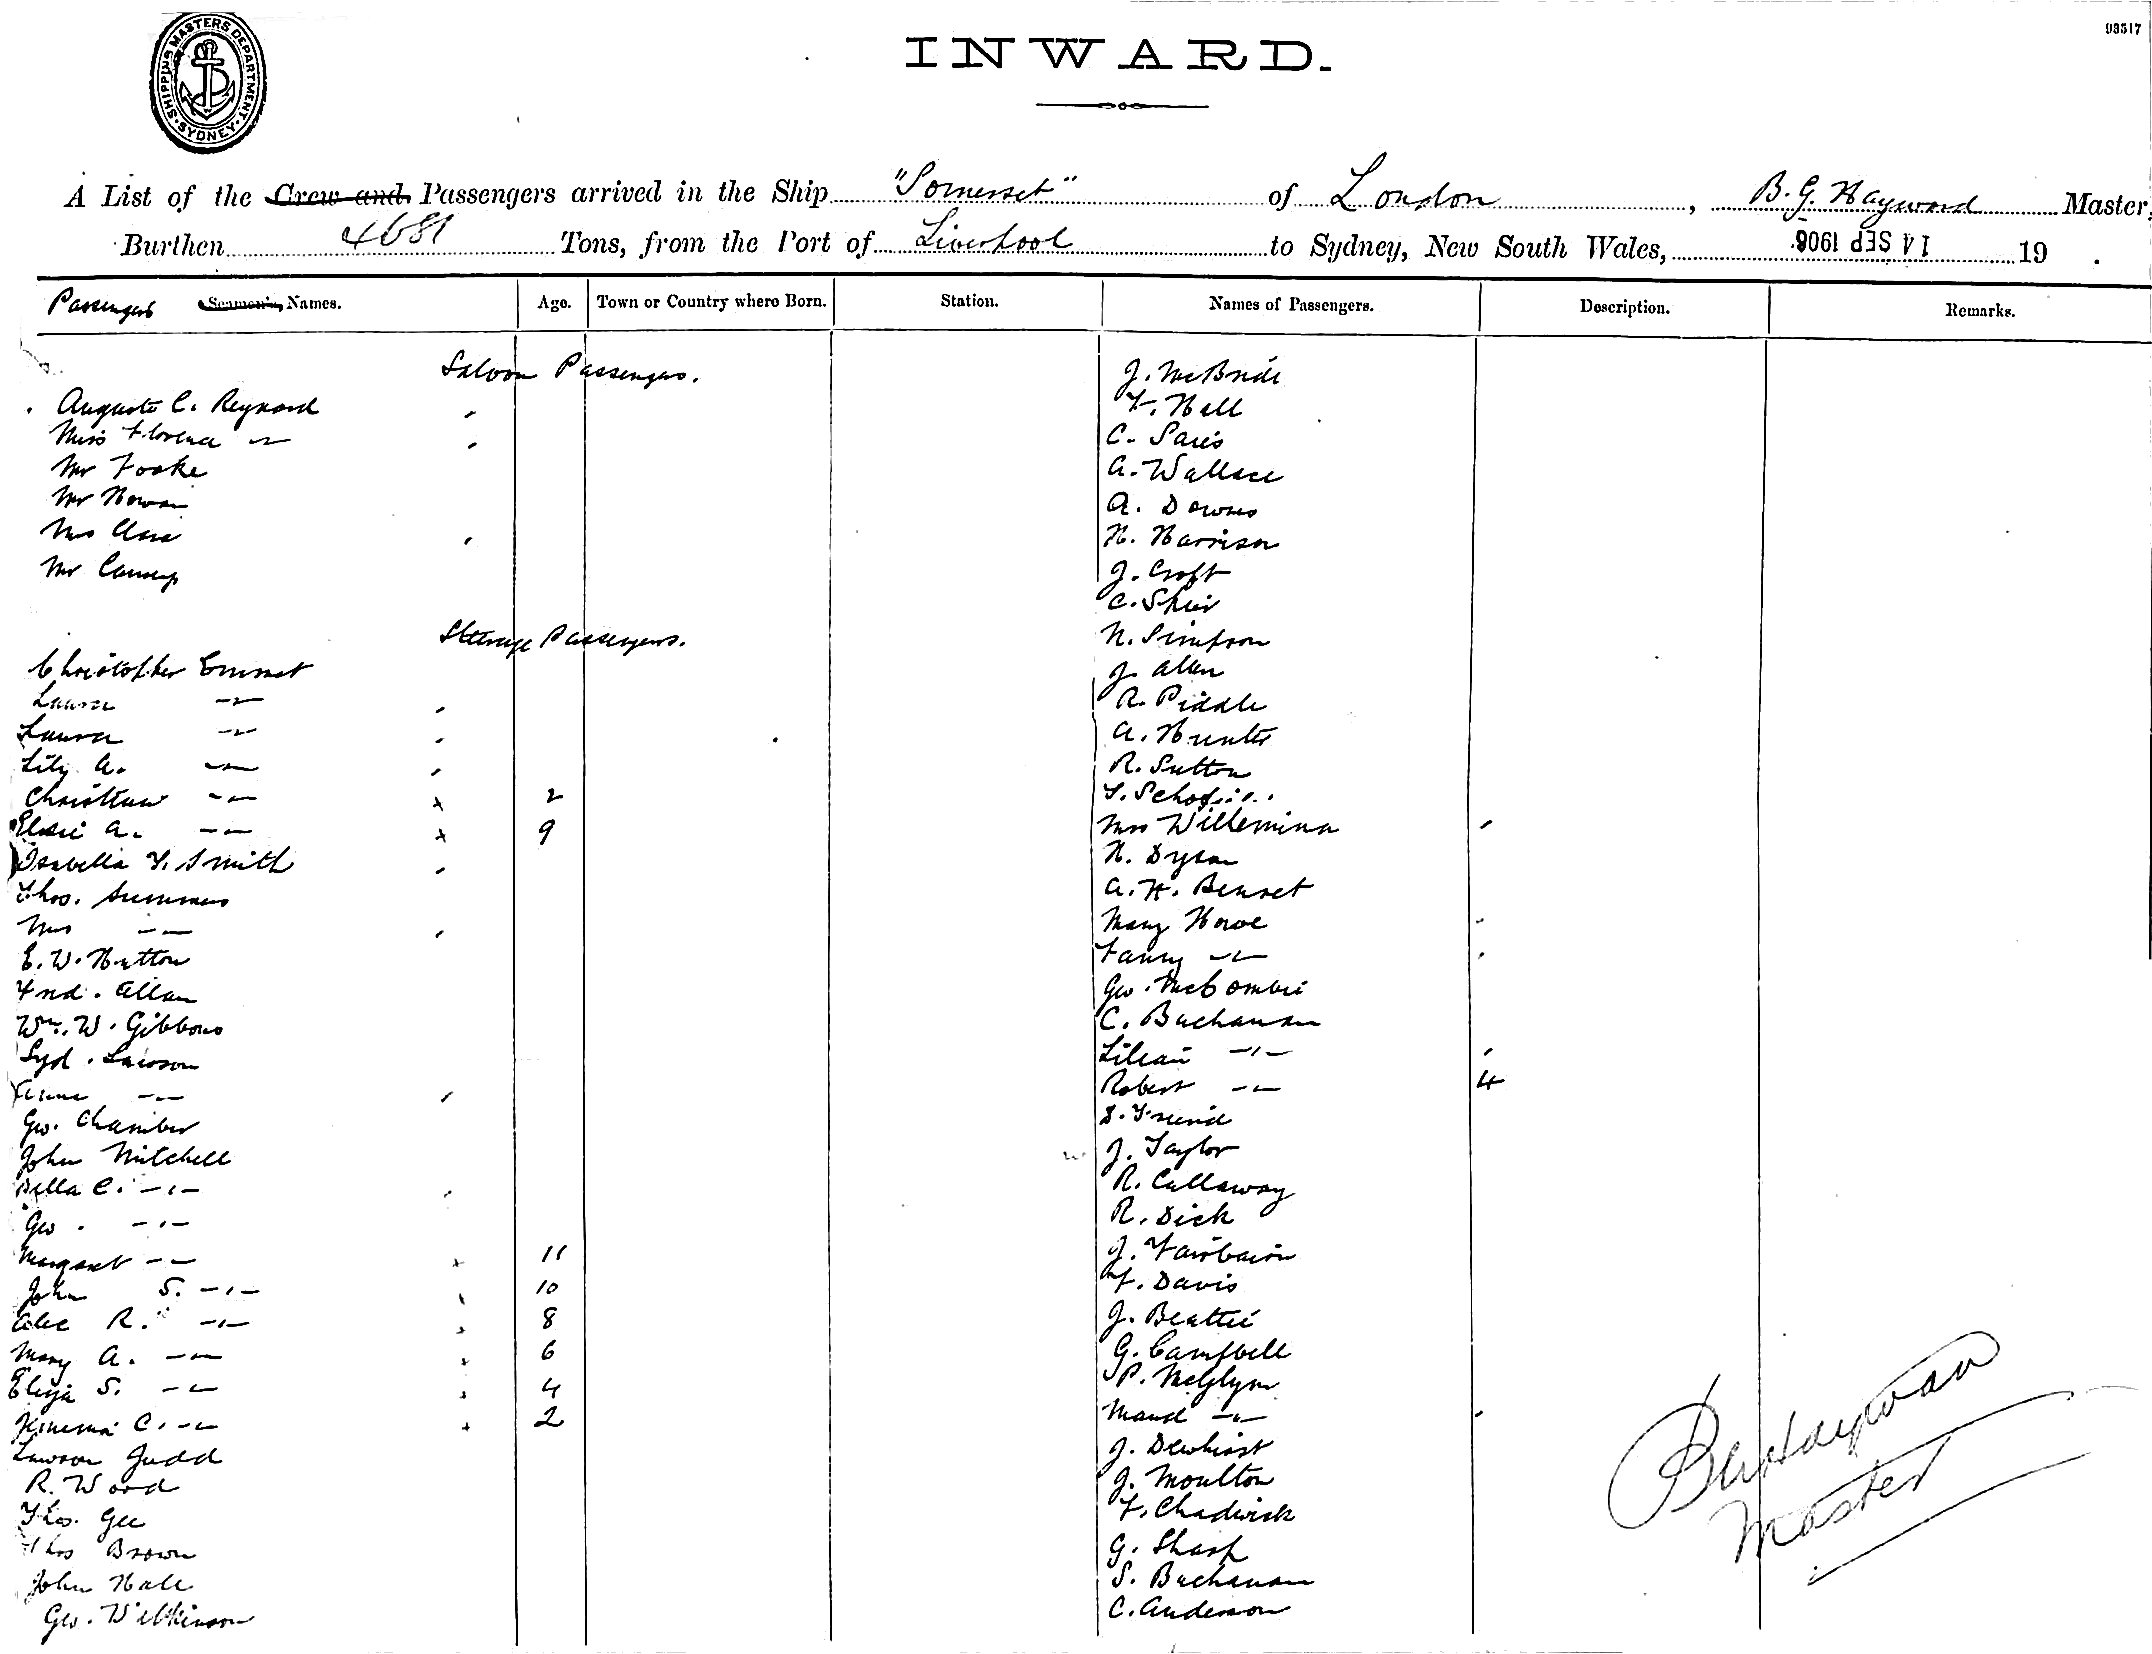 93517
SHIPPING MASTERS DEPARTMENT. SYDNEY
INWARD.
A List of the Crew and Passengers arrived in the Ship "Somerset" of London, B. G. Hayward Master,
Burthen 4681 Tons, from the Port of Liverpool to Sydney, New South Wales, 14 SEP 1906. 19 .
Passengers Seamen's Names. Age. Town or Country where Born. Station. Names of Passengers. Description. Remarks.
Saloon Passengers.
Auguste C. Reynard
Miss Florence -"-
Mr Fooke
Mr
Mrs
Mr
Steerage Passengers.
Christopher Emmet
Laura -"-
Laura -"-
Lily A. -"-
-"- 2
Elsie A. -"- 9
Isabella Y. Smith
Thos. Summers
Mrs -"-
E. W. Hutton
Fred. Allan
Wm. W. Gibbons
Syd. Lawson
-"-
Geo. Chamber
John Mitchell
Bella C. -"-
Geo. -"-
Margaret -"- 11
John S. -"- 10
Alec R. -"- 8
Mary A. -"- 6
Eliza S. -"- 4
Jemema C. -"- 2
Lawson Judd
R. Wood
Thos. Gee
Thos Brown
John Hall
Geo. Wilkinson
J. McBride
F. Hall
C.
A. Wallace
A. Downs
H. Harrison
J. Croft
C.
N. Simpson
J. Allen
R. Piddle
A. Hunter
R. Sutton
Mrs Willemina
H. Dyson
A. H. Bennet
Mary Howe
Fanny -"-
Geo. McCombie
C. Buchanan
Lilian -"-
Robert -"- 4
S. Friend
J. Taylor
R. Callaway
R. Dick
J. Fairbairn
F. Davis
J. Beattie
G. Campbell
P. McGlynn
Maud -"-
J. Dewhirst
J. Moulton
F. Chadwick
G. Sharp
S. Buchanan
C. Anderson
B G Hayward
Master